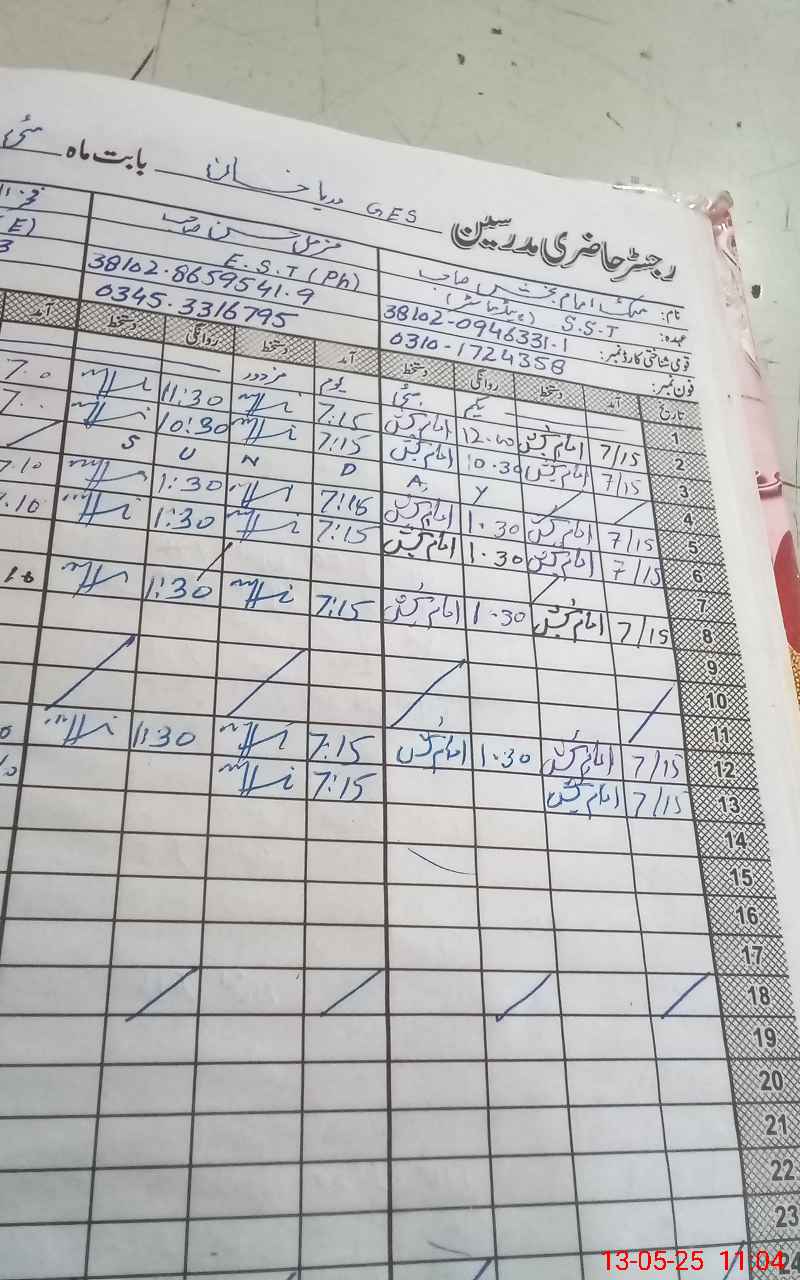 رجسٹر حاضری مدرسین GES دریا خان بابت ماہ مئی
نام: ملک امام بخش صاحب
مزمل حسین صاحب
عہدہ: S.S.T (ہیڈ ماسٹر)
E.S.T (Ph)
قومی شناختی کارڈ نمبر: 38102-0946331-1
38102-8659541-9
فون نمبر: 0310-1724358
0345-3316795
تاریخ آمد دستخط روانگی دستخط آمد دستخط روانگی دستخط آمد
1 یکم مئی یوم مزدور
2 7/15 امام بخش 12.40 امام بخش 7:15 11:30 7.0
3 7/15 امام بخش 10.30 امام بخش 7:15 10:30
4 S U N D A Y
5 7/15 امام بخش 1.30 امام بخش 7:15 1:30 7.10
6 7/15 امام بخش 1.30 امام بخش 7:15 1:30 7.10
7
8 7/15 امام بخش 1.30 امام بخش 7:15 1:30
9
10
11
12 7/15 امام بخش 1.30 امام بخش 7:15 1:30
13 7/15 امام بخش 7:15
14
15
16
17
18
19
20
21
22
23
24
13-05-25 11:04